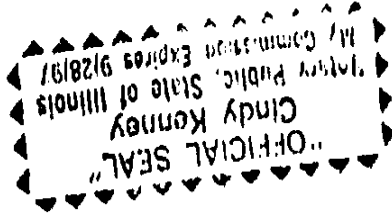 "OFFICIAL SEAL"
Cindy Kenney
Notary Public, State of Illinois
My Commission Expires 9/28/97